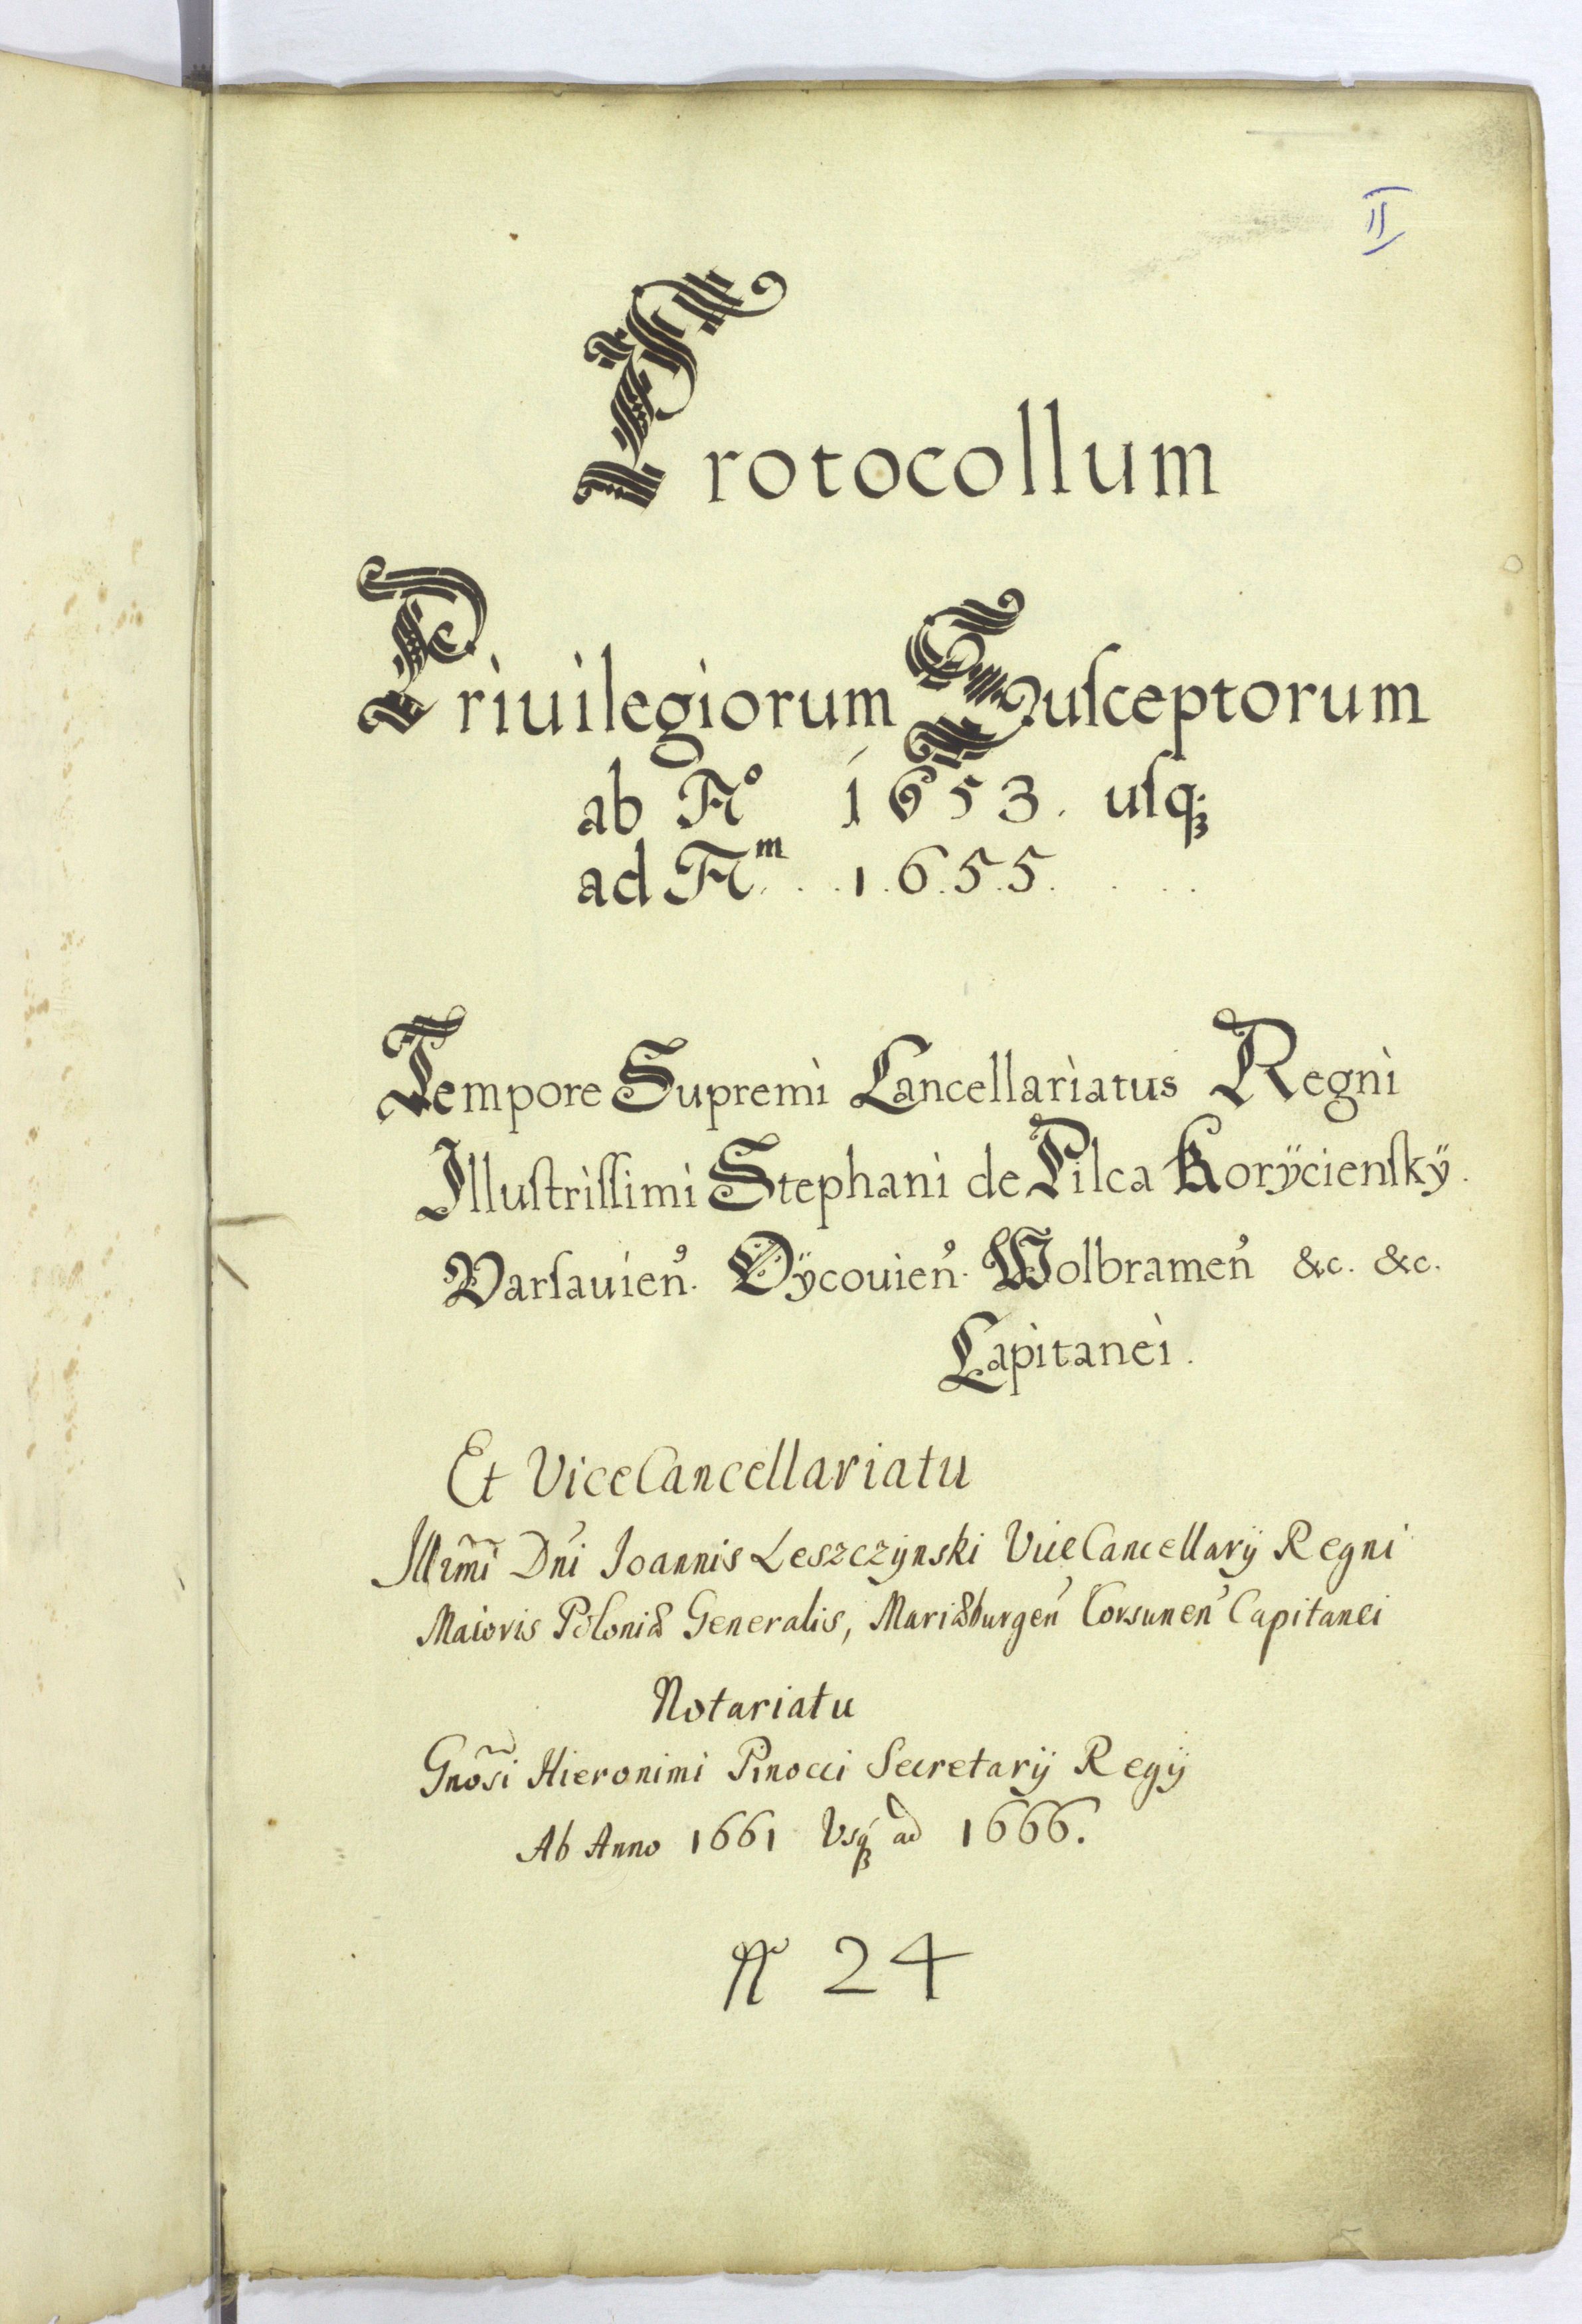 II
Protocollum
Priuilegiorum Suſceptorum
ab Aº 1653. uſq;
ad Aᵐ. . . 1.6.5.5. . . .
Tempore Supremi Cancellariatus Regni
Illuſtriſſimi Stephani de Pilca Korÿcienſkÿ.
Varſauien̉. Oÿcouien̉. Wolbramen̉ &c. &c.
Capitanei.
Et ViceCancellariatu
Illr̃mi Dn̉i Joannis Leszczÿnski ViceCancellarÿ Regni
Maioris Poloniæ Generalis, Mariæburgen̉ Corsunen̉ Capitanei
Notariatu
Gnõsi Hieronimi Pinocci Secretarÿ Regÿ
Ab Anno 1661 Vsq; ad 1666.
24